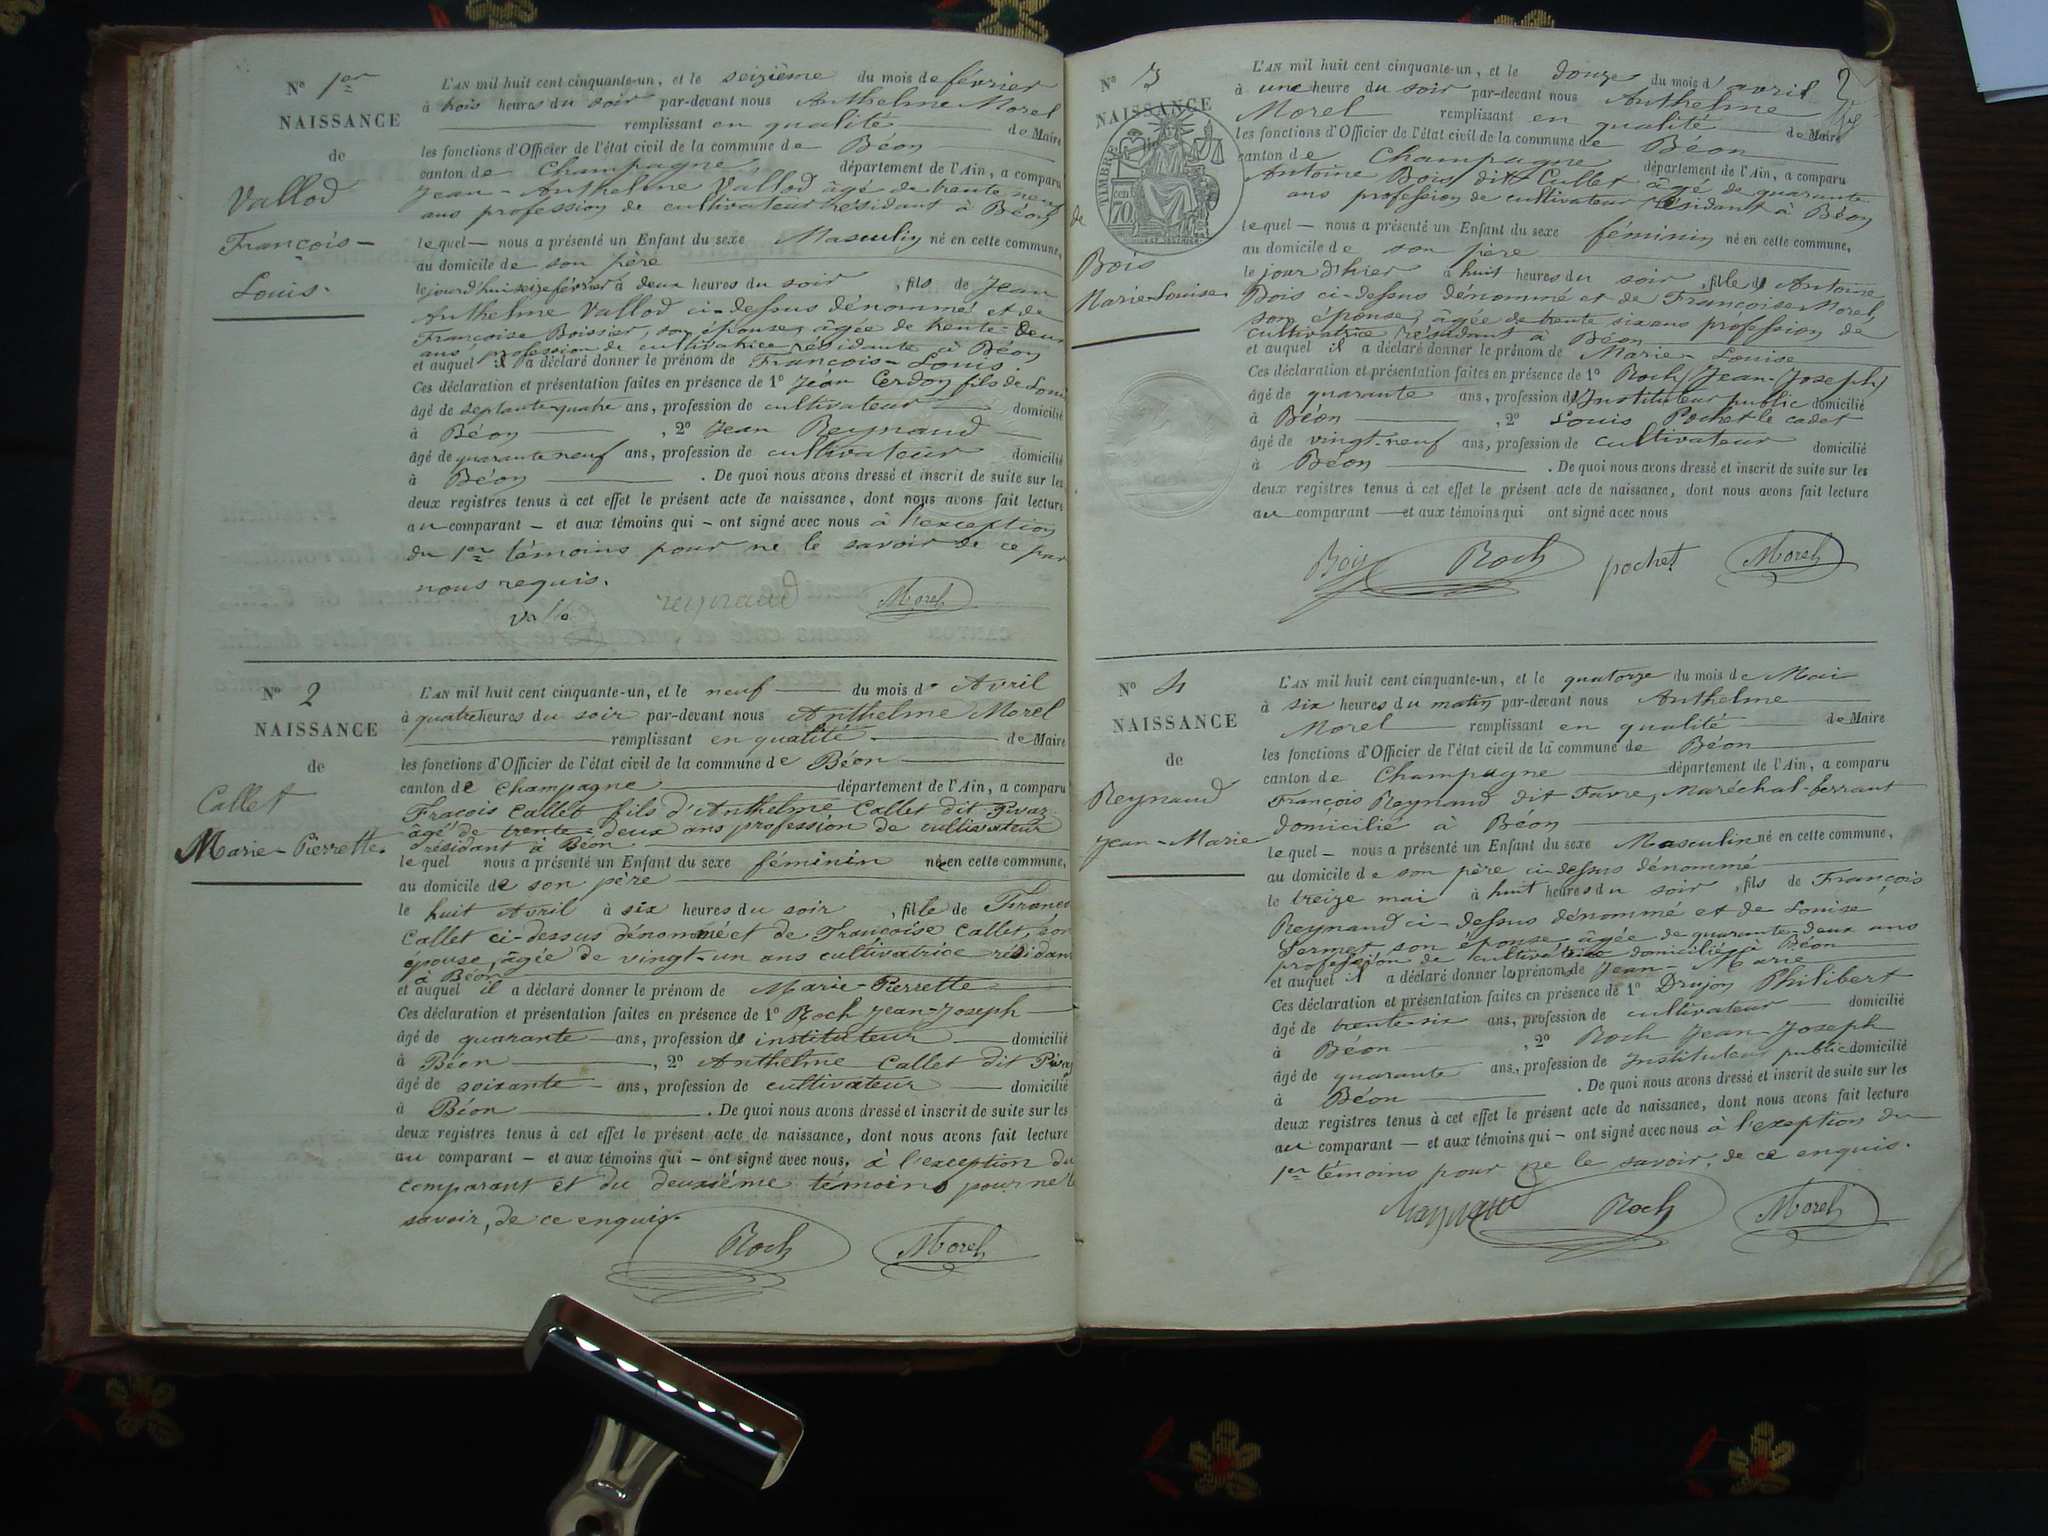 N° 1er
NAISSANCE
de
Vallod
François-
Louis.
L'AN mil huit cent cinquante-un, et le seizième du mois de février
à trois heures du soir par-devant nous Anthelme Morel
remplissant en qualité de Maire
les fonctions d'Officier de l'état civil de la commune de Béon
canton de Champagne, département de l'Ain, a comparu
Jean-Anthelme Vallod âgé de trente neuf
ans profession de cultivateur résidant à Béon
lequel — nous a présenté un Enfant du sexe Masculin né en cette commune,
au domicile de son père
le jourd'hui seize février à deux heures du soir, fils de Jean
Anthelme Vallod ci-dessus dénommé et de
Françoise Boissier, son épouse, âgée de trente-deux
ans profession de cultivatrice résidante à Béon
et auquel il a déclaré donner le prénom de François-Louis
Ces déclaration et présentation faites en présence de 1° Jean Cerdon fils de Louis
âgé de septante quatre ans, profession de cultivateur domicilié
à Béon, 2° Jean Reynaud
âgé de quarante neuf ans, profession de cultivateur domicilié
à Béon. De quoi nous avons dressé et inscrit de suite sur les
deux registres tenus à cet effet le présent acte de naissance, dont nous avons fait lecture
au comparant — et aux témoins qui — ont signé avec nous à l'exception
du 1er témoins pour ne le savoir de ce par
nous requis.
reynaud Morel
N° 2
NAISSANCE
de
Callet
Marie-Pierrette.
L'AN mil huit cent cinquante-un, et le neuf du mois d'Avril
à quatre heures du soir par-devant nous Anthelme Morel
remplissant en qualité de Maire
les fonctions d'Officier de l'état civil de la commune de Béon
canton de Champagne département de l'Ain, a comparu
Fracois Callet fils d'Anthelme Callet dit Pivaz
âgé de trente-deux ans profession de cultivateur
résidant à Béon
lequel nous a présenté un Enfant du sexe féminin né en cette commune,
au domicile de son père
le huit Avril à six heures du soir, fille de Francois
Callet ci-dessus dénommé et de Francoise Callet, son
épouse, âgée de vingt-un ans cultivatrice résidant
à Béon
et auquel il a déclaré donner le prénom de Marie-Pierrette
Ces déclaration et présentation faites en présence de 1° Roch Jean-Joseph
âgé de quarante ans, profession de instituteur domicilié
à Béon, 2° Anthelme Callet dit Pivaz
âgé de soixante ans, profession de cultivateur domicilié
à Béon. De quoi nous avons dressé et inscrit de suite sur les
deux registres tenus à cet effet le présent acte de naissance, dont nous avons fait lecture
au comparant — et aux témoins qui — ont signé avec nous, à l'exception du
comparant et du deuxième témoins pour ne le
savoir, de ce enquis.
Roch Morel
2
N° 3
NAISSANCE
de
TIMBRE
70
Bois
Marie-Louise
L'AN mil huit cent cinquante-un, et le douze du mois d'avril
à une heure du soir par-devant nous Anthelme
Morel remplissant en qualité de Maire
les fonctions d'Officier de l'état civil de la commune de Béon
canton de Champagne département de l'Ain, a comparu
Antoine Bois dit Cullet âgé de quarante
ans profession de cultivateur résidant à Béon
lequel — nous a présenté un Enfant du sexe féminin né en cette commune,
au domicile de son père
le jour d'hier à huit heures du soir, fille d'Antoine
Bois ci-dessus dénommé et de Françoise Morel,
son épouse, âgée de trente six ans profession de
cultivatrice résidant à Béon
et auquel il a déclaré donner le prénom de Marie-Louise
Ces déclaration et présentation faites en présence de 1° Roch (Jean-Joseph)
âgé de quarante ans, profession d'Instituteur public domicilié
à Béon, 2° Louis Pochet le cadet
âgé de vingt-neuf ans, profession de cultivateur domicilié
à Béon. De quoi nous avons dressé et inscrit de suite sur les
deux registres tenus à cet effet le présent acte de naissance, dont nous avons fait lecture
au comparant — et aux témoins qui ont signé avec nous
Bois Roch pochet Morel
N° 4
NAISSANCE
de
Reynaud
Jean-Marie
L'AN mil huit cent cinquante-un, et le quatorze du mois de Mai
à six heures du matin par-devant nous Anthelme
Morel remplissant en qualité de Maire
les fonctions d'Officier de l'état civil de la commune de Béon
canton de Champagne département de l'Ain, a comparu
François Reynaud dit Favre, Maréchal-ferrant
domicilié à Béon
lequel — nous a présenté un Enfant du sexe Masculin né en cette commune,
au domicile de son père ci-dessus dénommé
le treize mai à huit heures du soir, fils de François
Reynaud ci-dessus dénommé et de Louise
Sermet son épouse âgée de quarante-deux ans
profession de cultivatrice domiciliée à Béon
et auquel il a déclaré donner les prénoms de Jean-Marie
Ces déclaration et présentation faites en présence de 1° Drujon Philibert
âgé de trente-six ans, profession de cultivateur domicilié
à Béon, 2° Roch Jean-Joseph
âgé de quarante ans, profession de Instituteur public domicilié
à Béon. De quoi nous avons dressé et inscrit de suite sur les
deux registres tenus à cet effet le présent acte de naissance, dont nous avons fait lecture
au comparant — et aux témoins qui — ont signé avec nous à l'exeption du
1er témoins pour ne le savoir, de ce enquis.
Roch Morel